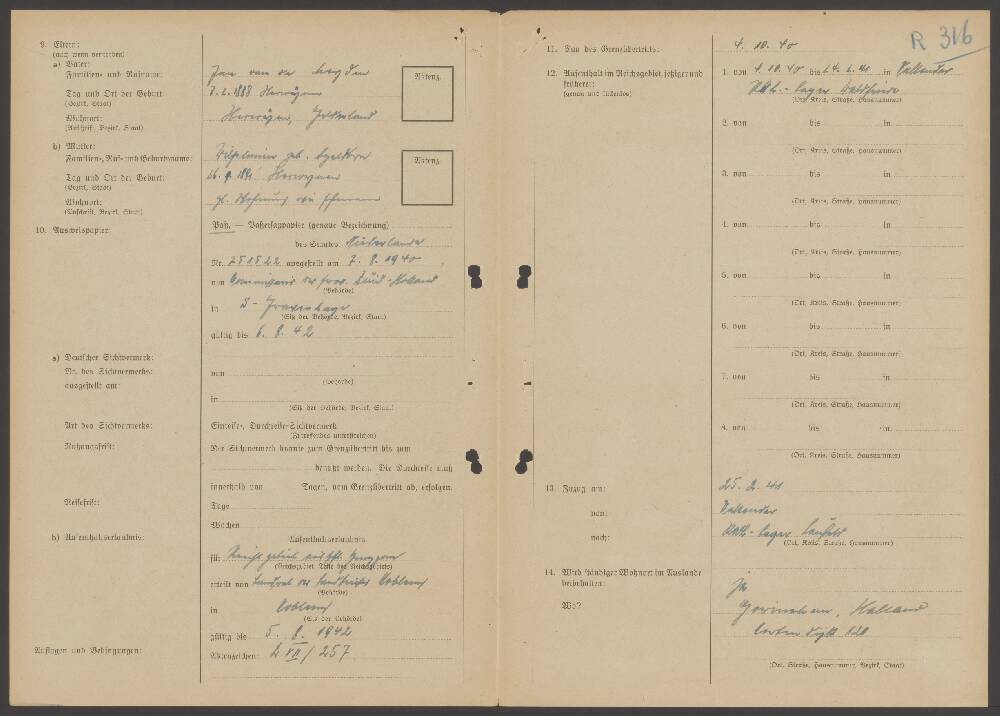 9. Eltern:
(auch wenn verstorben)
a) Vater:
Familien- und Rufname:
Jan van der
Ritenz.
Tag und Ort der Geburt:
(Bezirk, Staat)
8.2.1888 Herwijnen
Wohnort:
(Anschrift, Bezirk, Staat)
Herwijnen, Gelderland
b) Mutter:
Familien-, Ruf- und Geburtsname:
Wilhelmina geb.
Tag und Ort der Geburt:
(Bezirk, Staat)
26.9.1891 Herwijnen
Wohnort:
(Anschrift, Bezirk, Staat)
gl. Wohnung wie Ehemann
10. Ausweispapier:
Paß, — Paßersatzpapier (genaue Bezeichnung)
des Staates Niederlande
Nr. 751522 ausgestellt am 7. 8. 1940
von Commissaris der prov. Zuid-Holland
(Behörde)
in S-Gravenhage
(Sitz der Behörde, Bezirk, Staat)
gültig bis 6. 8. 42
a) Deutscher Sichtvermerk:
Nr. des Sichtvermerks:
von
(Behörde)
ausgestellt am:
in
(Sitz der Behörde, Bezirk, Staat)
Art des Sichtvermerks:
Einreise-, Durchreise-Sichtvermerk
(Zutreffendes unterstreichen)
Nutzungsfrist:
Der Sichtvermerk konnte zum Grenzübertritt bis zum
benutzt werden. Die Durchreise muß
innerhalb von Tagen, vom Grenzübertritt ab, erfolgen.
Reisefrist:
Tage
Wochen
b) Aufenthaltserlaubnis:
Aufenthaltserlaubnis
für Reichsgebiet
(Reichsgebiet, Teile des Reichsgebiets)
erteilt von Landrat des Landkreises Koblenz
(Behörde)
in Koblenz
(Sitz der Behörde)
gültig bis 5. 8. 1942
Auflagen und Bedingungen:
Aktenzeichen: 2 VII/257
R 316
11. Tag des Grenzübertritts:
4. 10. 40
12. Aufenthalt im Reichsgebiet, jetziger und
früherer:
(genau und lückenlos)
1. von 4. 10. 40 bis 24. 2. 41 in Vallendar
RAB.-Lager
(Ort, Kreis, Straße, Hausnummer)
2. von bis in
(Ort, Kreis, Straße, Hausnummer)
3. von bis in
(Ort, Kreis, Straße, Hausnummer)
4. von bis in
(Ort, Kreis, Straße, Hausnummer)
5. von bis in
(Ort, Kreis, Straße, Hausnummer)
6. von bis in
(Ort, Kreis, Straße, Hausnummer)
7. von bis in
(Ort, Kreis, Straße, Hausnummer)
8. von bis in
(Ort, Kreis, Straße, Hausnummer)
13. Zuzug am:
25. 2. 41
von:
Vallendar
nach:
RAB.-Lager
(Ort, Kreis, Straße, Hausnummer)
14. Wird ständiger Wohnort im Auslande
beibehalten:
Ja
Wo?
Gorinchem, Holland
(Ort, Straße, Hausnummer, Bezirk, Staat)